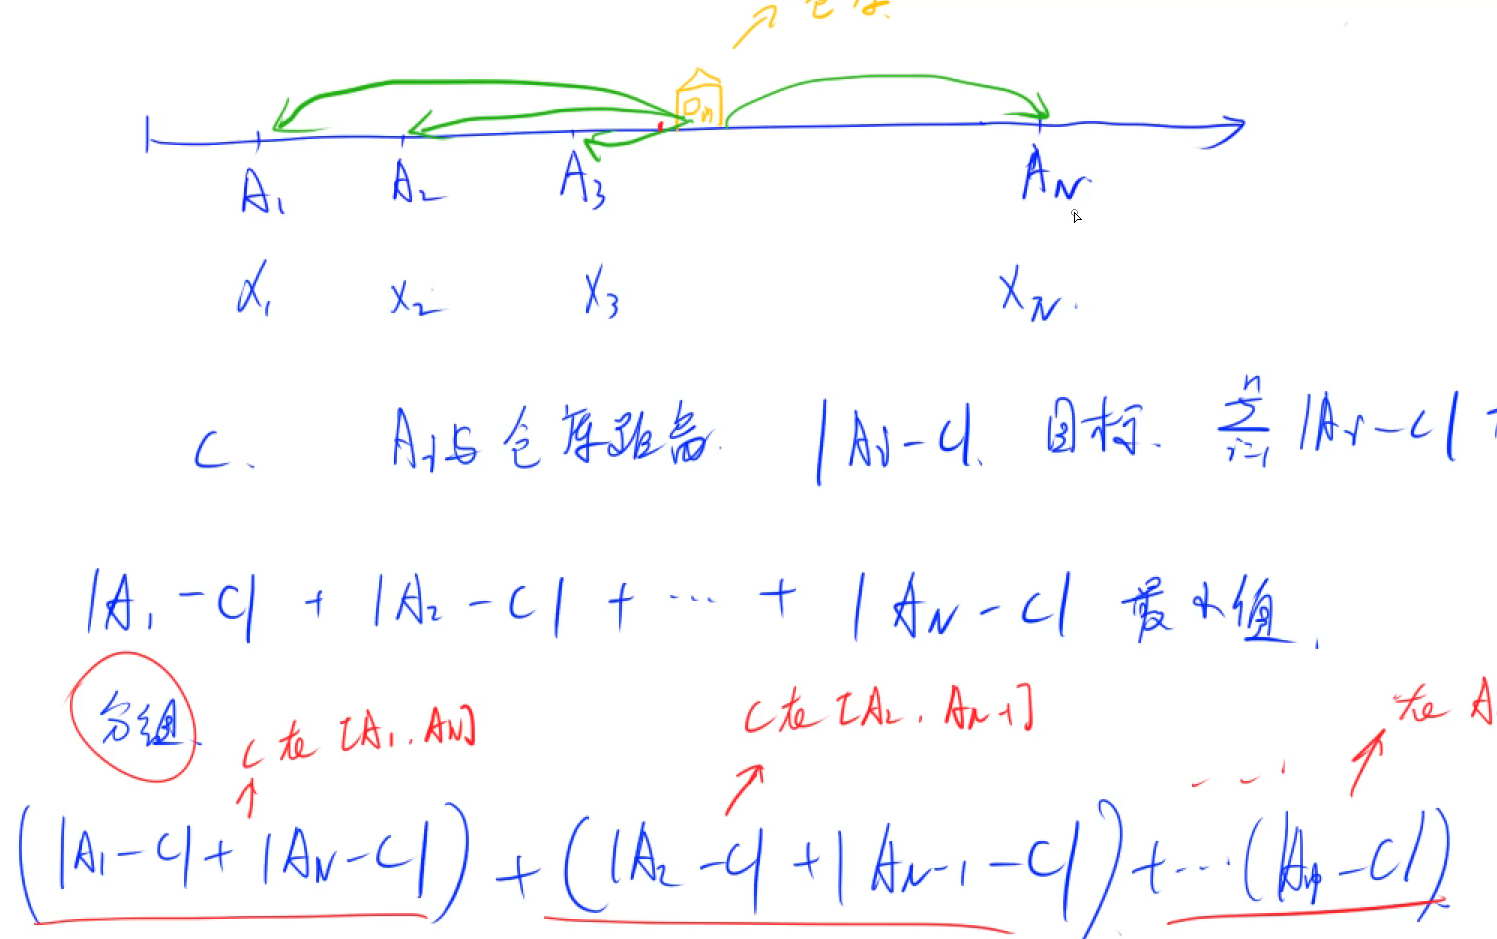 A₁ A₂ A₃ A_N
x₁ x₂ x₃ x_N.
C. Aᵢ与仓库距离. |Aᵢ-C|. 目标. ∑ⁿᵢ₌₁ |Aᵢ-C|
|A₁-C| + |A₂-C| + … + |A_N-C| 最小值.
分组. C在[A₁, A_N] C在[A₂, A_N-1] … 在A
(|A₁-C|+|A_N-C|)+(|A₂-C|+|A_N-1-C|)+…(|A -C|)